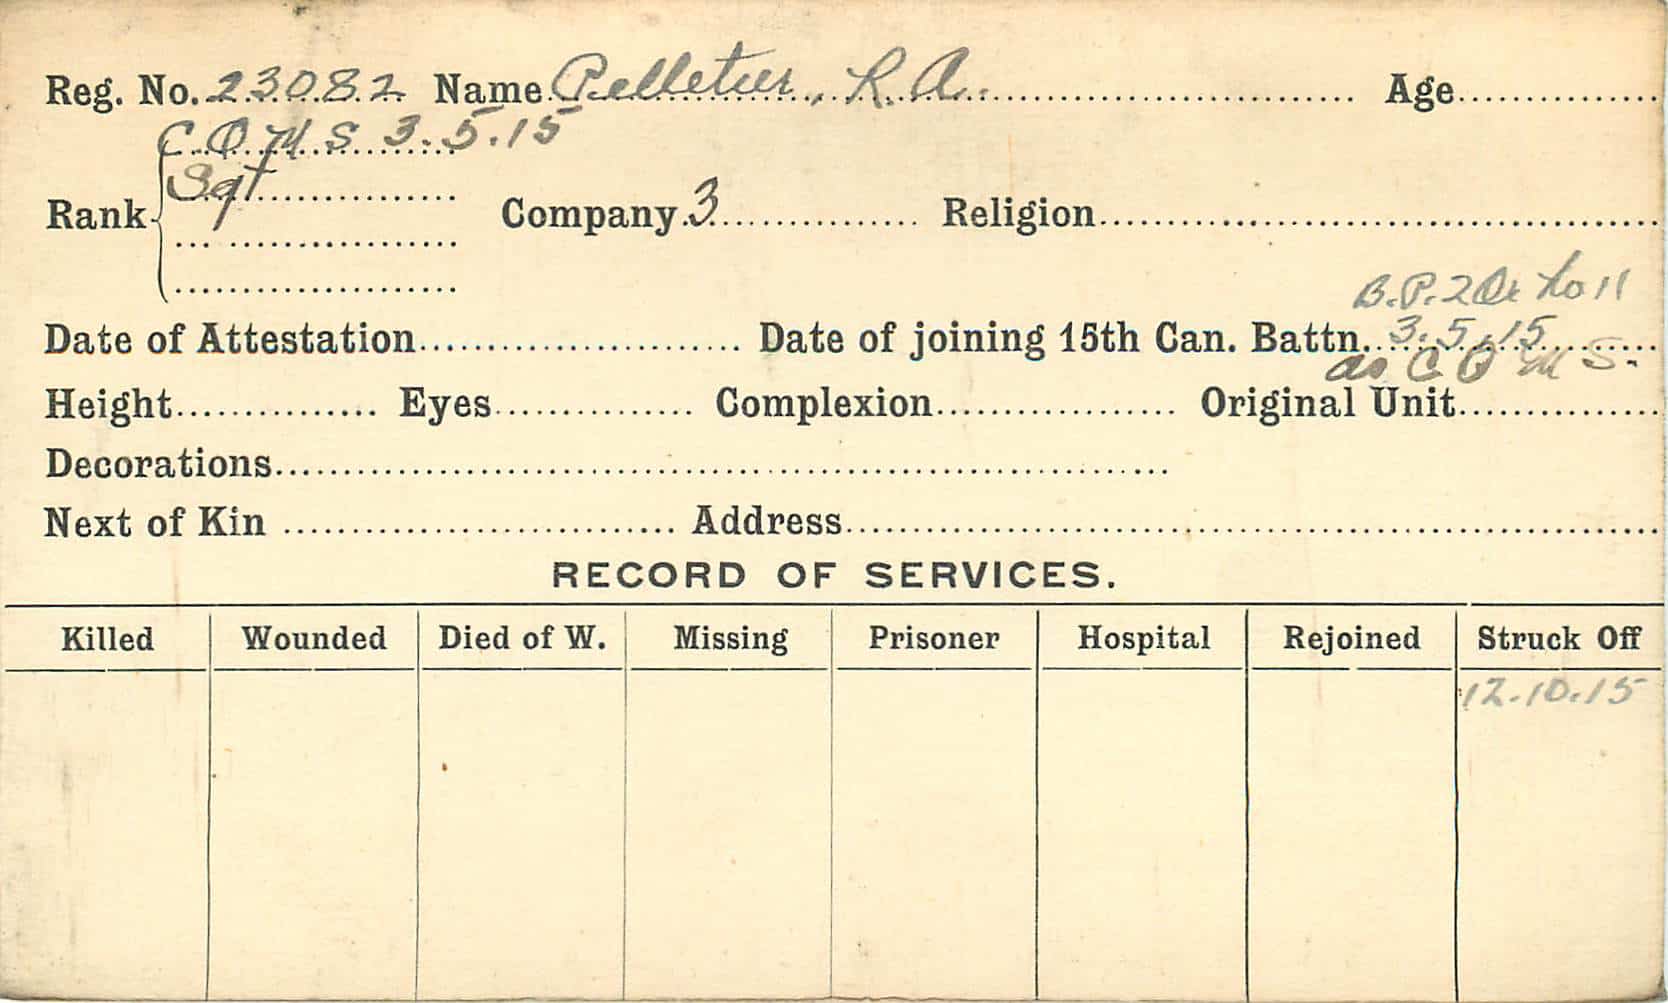 Reg. No. 23082 Name Pelletier, R. A. Age
C. Q. M. S. 3.5.15
Sgt
Rank Company 3 Religion
B.P. 2 No 11
Date of Attestation Date of joining 15th Can. Battn. 3.5.15
as C Q M S.
Height Eyes Complexion Original Unit
Decorations
Next of Kin Address
RECORD OF SERVICES.
Killed Wounded Died of W. Missing Prisoner Hospital Rejoined Struck Off
12.10.15